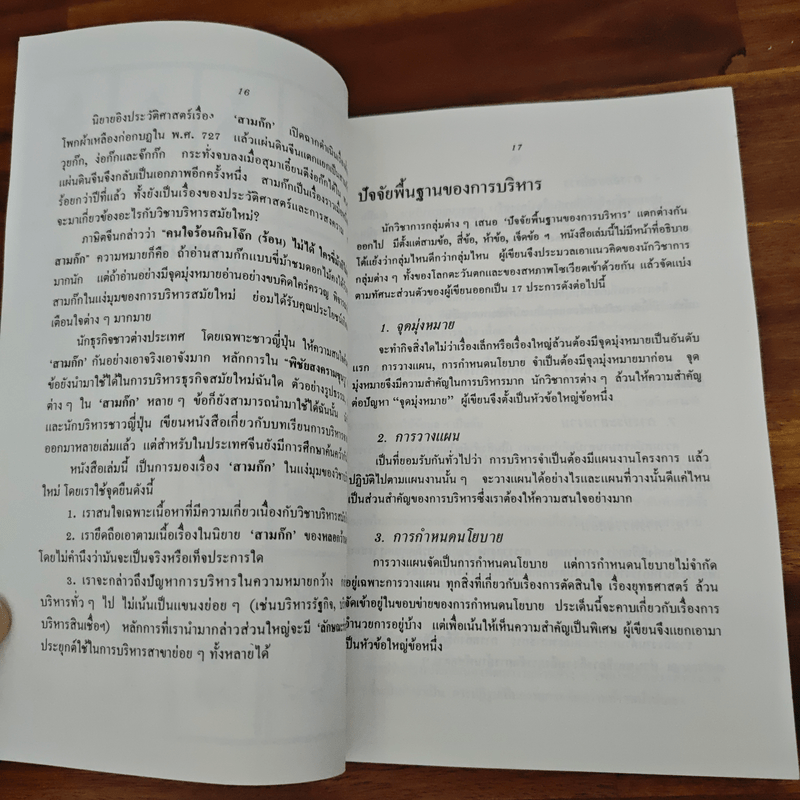 16
นิยายอิงประวัติศาสตร์เรื่อง 'สามก๊ก' เปิดฉากดำเนินเรื่อง
โพกผ้าเหลืองก่อกบฏใน พ.ศ. 727 แล้วแผ่นดินจีนแตกแยกเป็น
วุยก๊ก, ง่อก๊กและจ๊กก๊ก กระทั่งจบลงเมื่อสุมาเอี๋ยนตีง่อก๊กได้ใน
แผ่นดินจีนจึงกลับเป็นเอกภาพอีกครั้งหนึ่ง สามก๊กเป็นเรื่องราว
ร้อยกว่าปีที่แล้ว ทั้งยังเป็นเรื่องของประวัติศาสตร์และการสงคราม
จะมาเกี่ยวข้องอะไรกับวิชาบริหารสมัยใหม่?
ภาษิตจีนกล่าวว่า "คนใจร้อนกินโจ๊ก (ร้อน) ไม่ได้ ใคร
สามก๊ก" ความหมายก็คือ ถ้าอ่านสามก๊กแบบขี่ม้าชมดอกไม้
มากนัก แต่ถ้าอ่านอย่างมีจุดมุ่งหมายอ่านอย่างขบคิดใคร่ครวญ
สามก๊กในแง่มุมของการบริหารสมัยใหม่ ย่อมได้รับคุณประโยชน์
เตือนใจต่าง ๆ มากมาย
นักธุรกิจชาวต่างประเทศ โดยเฉพาะชาวญี่ปุ่น ให้ความสนใจ
'สามก๊ก' กันอย่างเอาจริงเอาจังมาก หลักการใน "พิชัยสงคราม
ข้อยังนำมาใช้ได้ในการบริหารธุรกิจสมัยใหม่ฉันใด ตัวอย่างรูปธรรม
ต่าง ๆ ใน 'สามก๊ก' หลาย ๆ ข้อก็ยังสามารถนำมาใช้ได้ฉันนั้น
และนักบริหารชาวญี่ปุ่น เขียนหนังสือเกี่ยวกับบทเรียนการบริหาร
ออกมาหลายเล่มแล้ว แต่สำหรับในประเทศจีนยังมีการศึกษาค้นคว้า
หนังสือเล่มนี้ เป็นการมองเรื่อง 'สามก๊ก' ในแง่มุมของวิชา
ใหม่ โดยเราใช้จุดยืนดังนี้
1. เราสนใจเฉพาะเนื้อหาที่มีความเกี่ยวเนื่องกับวิชาบริหาร
2. เรายึดถือเอาตามเนื้อเรื่องในนิยาย 'สามก๊ก' ของหลอกว้าน
โดยไม่คำนึงว่ามันจะเป็นจริงหรือเท็จประการใด
3. เราจะกล่าวถึงปัญหาการบริหารในความหมายกว้าง
บริหารทั่ว ๆ ไป ไม่เน้นเป็นแขนงย่อย ๆ (เช่นบริหารรัฐกิจ,
บริหารสินเชื่อฯ) หลักการที่เรานำมากล่าวส่วนใหญ่จะมี 'ลักษณะ
ประยุกต์ใช้ในการบริหารสาขาย่อย ๆ ทั้งหลายได้
17
ปัจจัยพื้นฐานของการบริหาร
นักวิชาการกลุ่มต่าง ๆ เสนอ 'ปัจจัยพื้นฐานของการบริหาร' แตกต่างกัน
ออกไป มีตั้งแต่สามข้อ, สี่ข้อ, ห้าข้อ, เจ็ดข้อ ฯ หนังสือเล่มนี้ไม่มีหน้าที่อธิบาย
โต้แย้งว่ากลุ่มไหนดีกว่ากลุ่มไหน ผู้เขียนจึงประมวลเอาแนวคิดของนักวิชาการ
กลุ่มต่าง ๆ ทั้งของโลกตะวันตกและของสหภาพโซเวียตเข้าด้วยกัน แล้วจัดแบ่ง
ตามทัศนะส่วนตัวของผู้เขียนออกเป็น 17 ประการดังต่อไปนี้
1. จุดมุ่งหมาย
จะทำกิจสิ่งใดไม่ว่าเรื่องเล็กหรือเรื่องใหญ่ล้วนต้องมีจุดมุ่งหมายเป็นอันดับ
แรก การวางแผน, การกำหนดนโยบาย จำเป็นต้องมีจุดมุ่งหมายมาก่อน จุด
มุ่งหมายจึงมีความสำคัญในการบริหารมาก นักวิชาการต่าง ๆ ล้วนให้ความสำคัญ
ต่อปัญหา "จุดมุ่งหมาย" ผู้เขียนจึงตั้งเป็นหัวข้อใหญ่ข้อหนึ่ง
2. การวางแผน
เป็นที่ยอมรับกันทั่วไปว่า การบริหารจำเป็นต้องมีแผนงานโครงการ แล้ว
ปฏิบัติไปตามแผนงานนั้น ๆ จะวางแผนได้อย่างไรและแผนที่วางนั้นดีแค่ไหน
เป็นส่วนสำคัญของการบริหารซึ่งเราต้องให้ความสนใจอย่างมาก
3. การกำหนดนโยบาย
การวางแผนจัดเป็นการกำหนดนโยบาย แต่การกำหนดนโยบายไม่จำกัด
อยู่เฉพาะการวางแผน ทุกสิ่งที่เกี่ยวกับเรื่องการตัดสินใจ เรื่องยุทธศาสตร์ ล้วน
จัดเข้าอยู่ในขอบข่ายของการกำหนดนโยบาย ประเด็นนี้จะคาบเกี่ยวกับเรื่องการ
อำนวยการอยู่บ้าง แต่เพื่อเน้นให้เห็นความสำคัญเป็นพิเศษ ผู้เขียนจึงแยกเอามา
เป็นหัวข้อใหญ่ข้อหนึ่ง